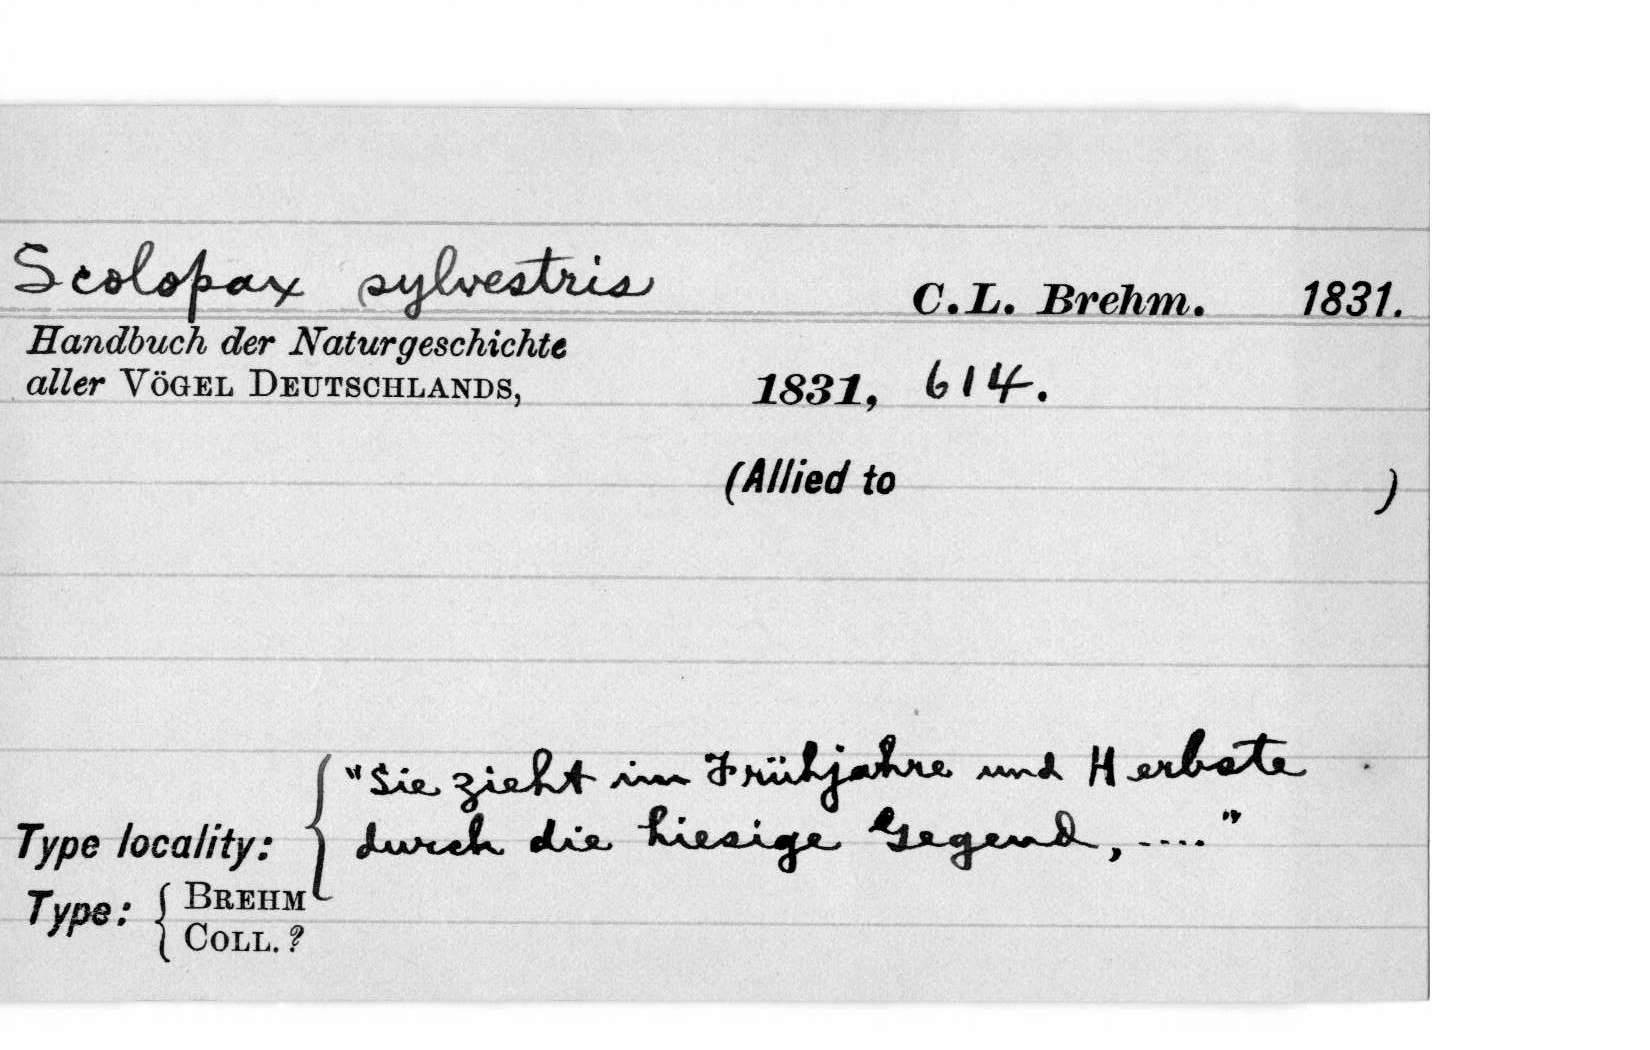 Scolopax sylvestris C.L. Brehm. 1831.
Handbuch der Naturgeschichte
aller VÖGEL DEUTSCHLANDS, 1831, 614.
(Allied to )
"Sie zieht im Frühjahre und Herbste
Type locality: { durch die hiesige Gegend, ...."
Type: { BREHM
COLL. ?